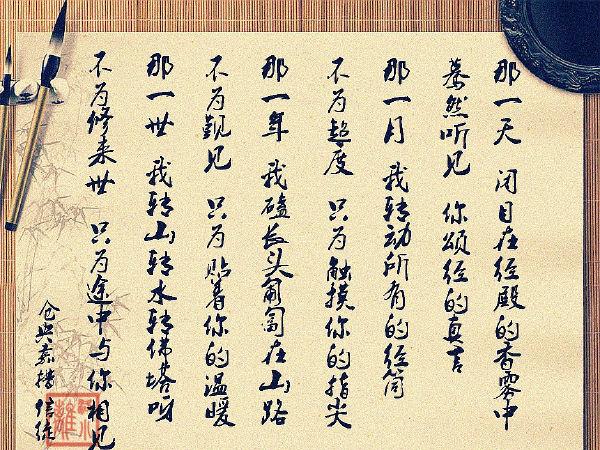 那一天 闭目在经殿的香雾中
蓦然听见 你颂经的真言
那一月 我转动所有的经筒
不为超度 只为触摸你的指尖
那一年 我磕长头匍匐在山路
不为觐见 只为贴着你的温暖
那一世 我转山转水转佛塔呀
不为修来世 只为途中与你相见
仓央嘉措 信徒